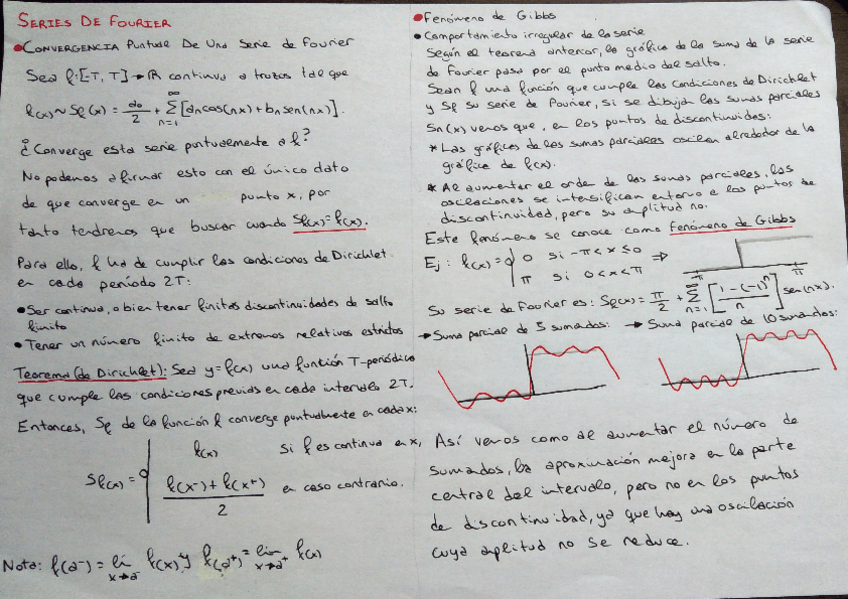 SERIES DE FOURIER
• CONVERGENCIA Puntual De Una Serie de Fourier
Sea f:[-T, T]→ℝ continua a trozos tal que
f(x)~Sf(x) = a₀/2 + Σ_{n=1}^{∞} [aₙcos(nx)+bₙsen(nx)].
¿Converge esta serie puntualmente a f?
No podemos afirmar esto con el único dato
de que converge en un punto x, por
tanto tendremos que buscar cuando Sf(x)=f(x).
Para ello, f ha de cumplir las condiciones de Dirichlet
en cada período 2T:
• Ser continua, o bien tener finitas discontinuidades de salto
finito
• Tener un número finito de extremos relativos estrictos
Teorema (de Dirichlet): Sea y=f(x) una función T-periódica
que cumple las condiciones previas en cada intervalo 2T.
Entonces, Sf de la función f converge puntualmente en cada x:
Sf(x) = { f(x) si f es continua en x,
(f(x⁻)+f(x⁺))/2 en caso contrario.
Nota: f(a⁻) = lím_{x→a⁻} f(x) y f(a⁺) = lím_{x→a⁺} f(x)
• Fenómeno de Gibbs
• Comportamiento irregular de la serie
Según el teorema anterior, la gráfica de la suma de la serie
de Fourier pasa por el punto medio del salto.
Sean f una función que cumple las Condiciones de Dirichlet
y Sf su serie de Fourier, si se dibujan las sumas parciales
Sn(x) vemos que, en los puntos de discontinuidad:
* Las gráficas de las sumas parciales oscilan alrededor de la
gráfica de f(x).
* Al aumentar el orden de las sumas parciales, las
oscilaciones se intensifican entorno a los puntos de
discontinuidad, pero su amplitud no.
Este fenómeno se conoce como fenómeno de Gibbs
Ej: f(x) = { 0 si -π<x≤0 ⇒
π si 0<x<π
-π π
Su serie de Fourier es: Sf(x) = π/2 + Σ_{n=1}^{∞} [(1-(-1)ⁿ)/n] sen(nx).
→ Suma parcial de 5 sumandos: → Suma parcial de 10 sumandos:
Así vemos como al aumentar el número de
sumados, la aproximación mejora en la parte
central del intervalo, pero no en los puntos
de discontinuidad, ya que hay una oscilación
cuya amplitud no se reduce.